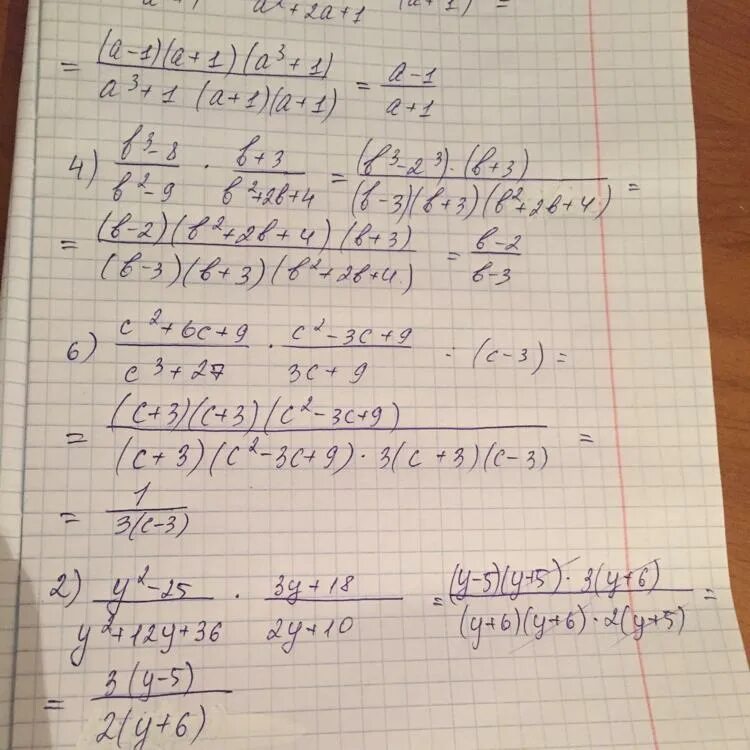 a² + 2a + 1 (a+1)² =
= (a-1)(a+1)(a³+1) / a³+1 (a+1)(a+1) = a-1 / a+1
4) в³-8 / в²-9 · в+3 / в²+2в+4 = (в³-2³)·(в+3) / (в-3)(в+3)(в²+2в+4) =
= (в-2)(в²+2в+4)(в+3) / (в-3)(в+3)(в²+2в+4) = в-2 / в-3
6) c²+6c+9 / c³+27 · c²-3c+9 / 3c+9 : (c-3) =
= (c+3)(c+3)(c²-3c+9) / (c+3)(c²-3c+9)·3(c+3)(c-3) =
= 1 / 3(c-3)
2) y²-25 / y²+12y+36 · 3y+18 / 2y+10 = (y-5)(y+5)·3(y+6) / (y+6)(y+6)·2(y+5) =
= 3(y-5) / 2(y+6)